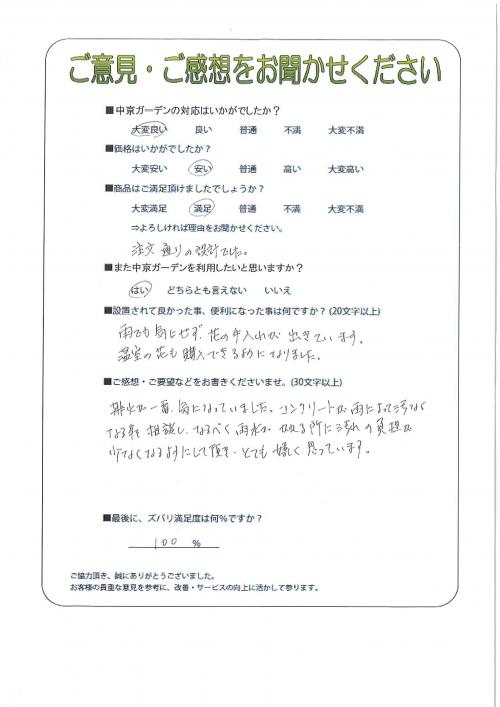 ご意見・ご感想をお聞かせください
■中京ガーデンの対応はいかがでしたか？
大変良い　良い　普通　不満　大変不満
■価格はいかがでしたか？
大変安い　安い　普通　高い　大変高い
■商品はご満足頂けましたでしょうか？
大変満足　満足　普通　不満　大変不満
⇒よろしければ理由をお聞かせください。
注文通りの設計でした。
■また中京ガーデンを利用したいと思いますか？
はい　どちらとも言えない　いいえ
■設置されて良かった事、便利になった事は何ですか？(20文字以上)
雨でも気にせず、花の手入れが出きています。
温室の花も購入できるようになりました。
■ご感想・ご要望などをお書きくださいませ。(30文字以上)
排水が一番気になっていました、コンクリートが雨によって汚なく
なる事を相談し、なるべく雨水が かかる所に汚れの負担が
少なくなるようにして頂き、とても嬉しく思っています。
■最後に、ズバリ満足度は何％ですか？
100 %
ご協力頂き、誠にありがとうございました。
お客様の貴重な意見を参考に、改善・サービスの向上に活かして参ります。